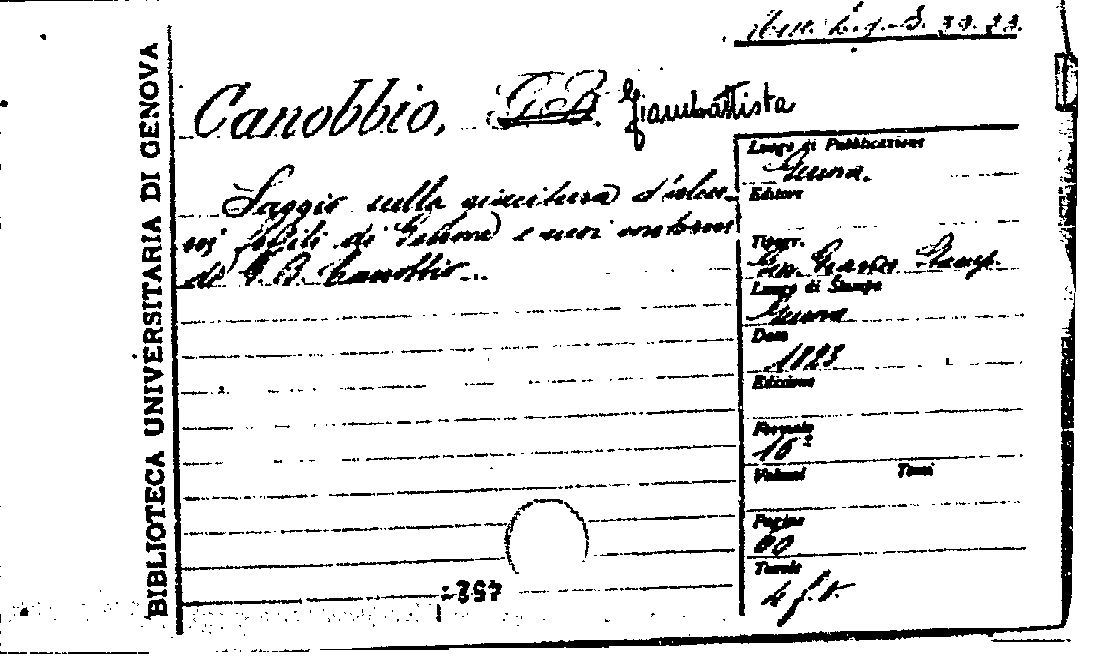 BIBLIOTECA UNIVERSITARIA DI GENOVA
Canobbio, G B. Giambattista
Saggio sulla giacitura d'alcu-
ni fossili di Genova e suoi contorni
di G. B. Canobbio...
Luogo di Pubblicazione
Genova.
Editore
Tipogr.
Stamp.
Luogo di Stampa
Genova
Data
1823
Edizione
Formato
16º
Volumi Tomi
Pagine
80
Tavole
4 f.t.